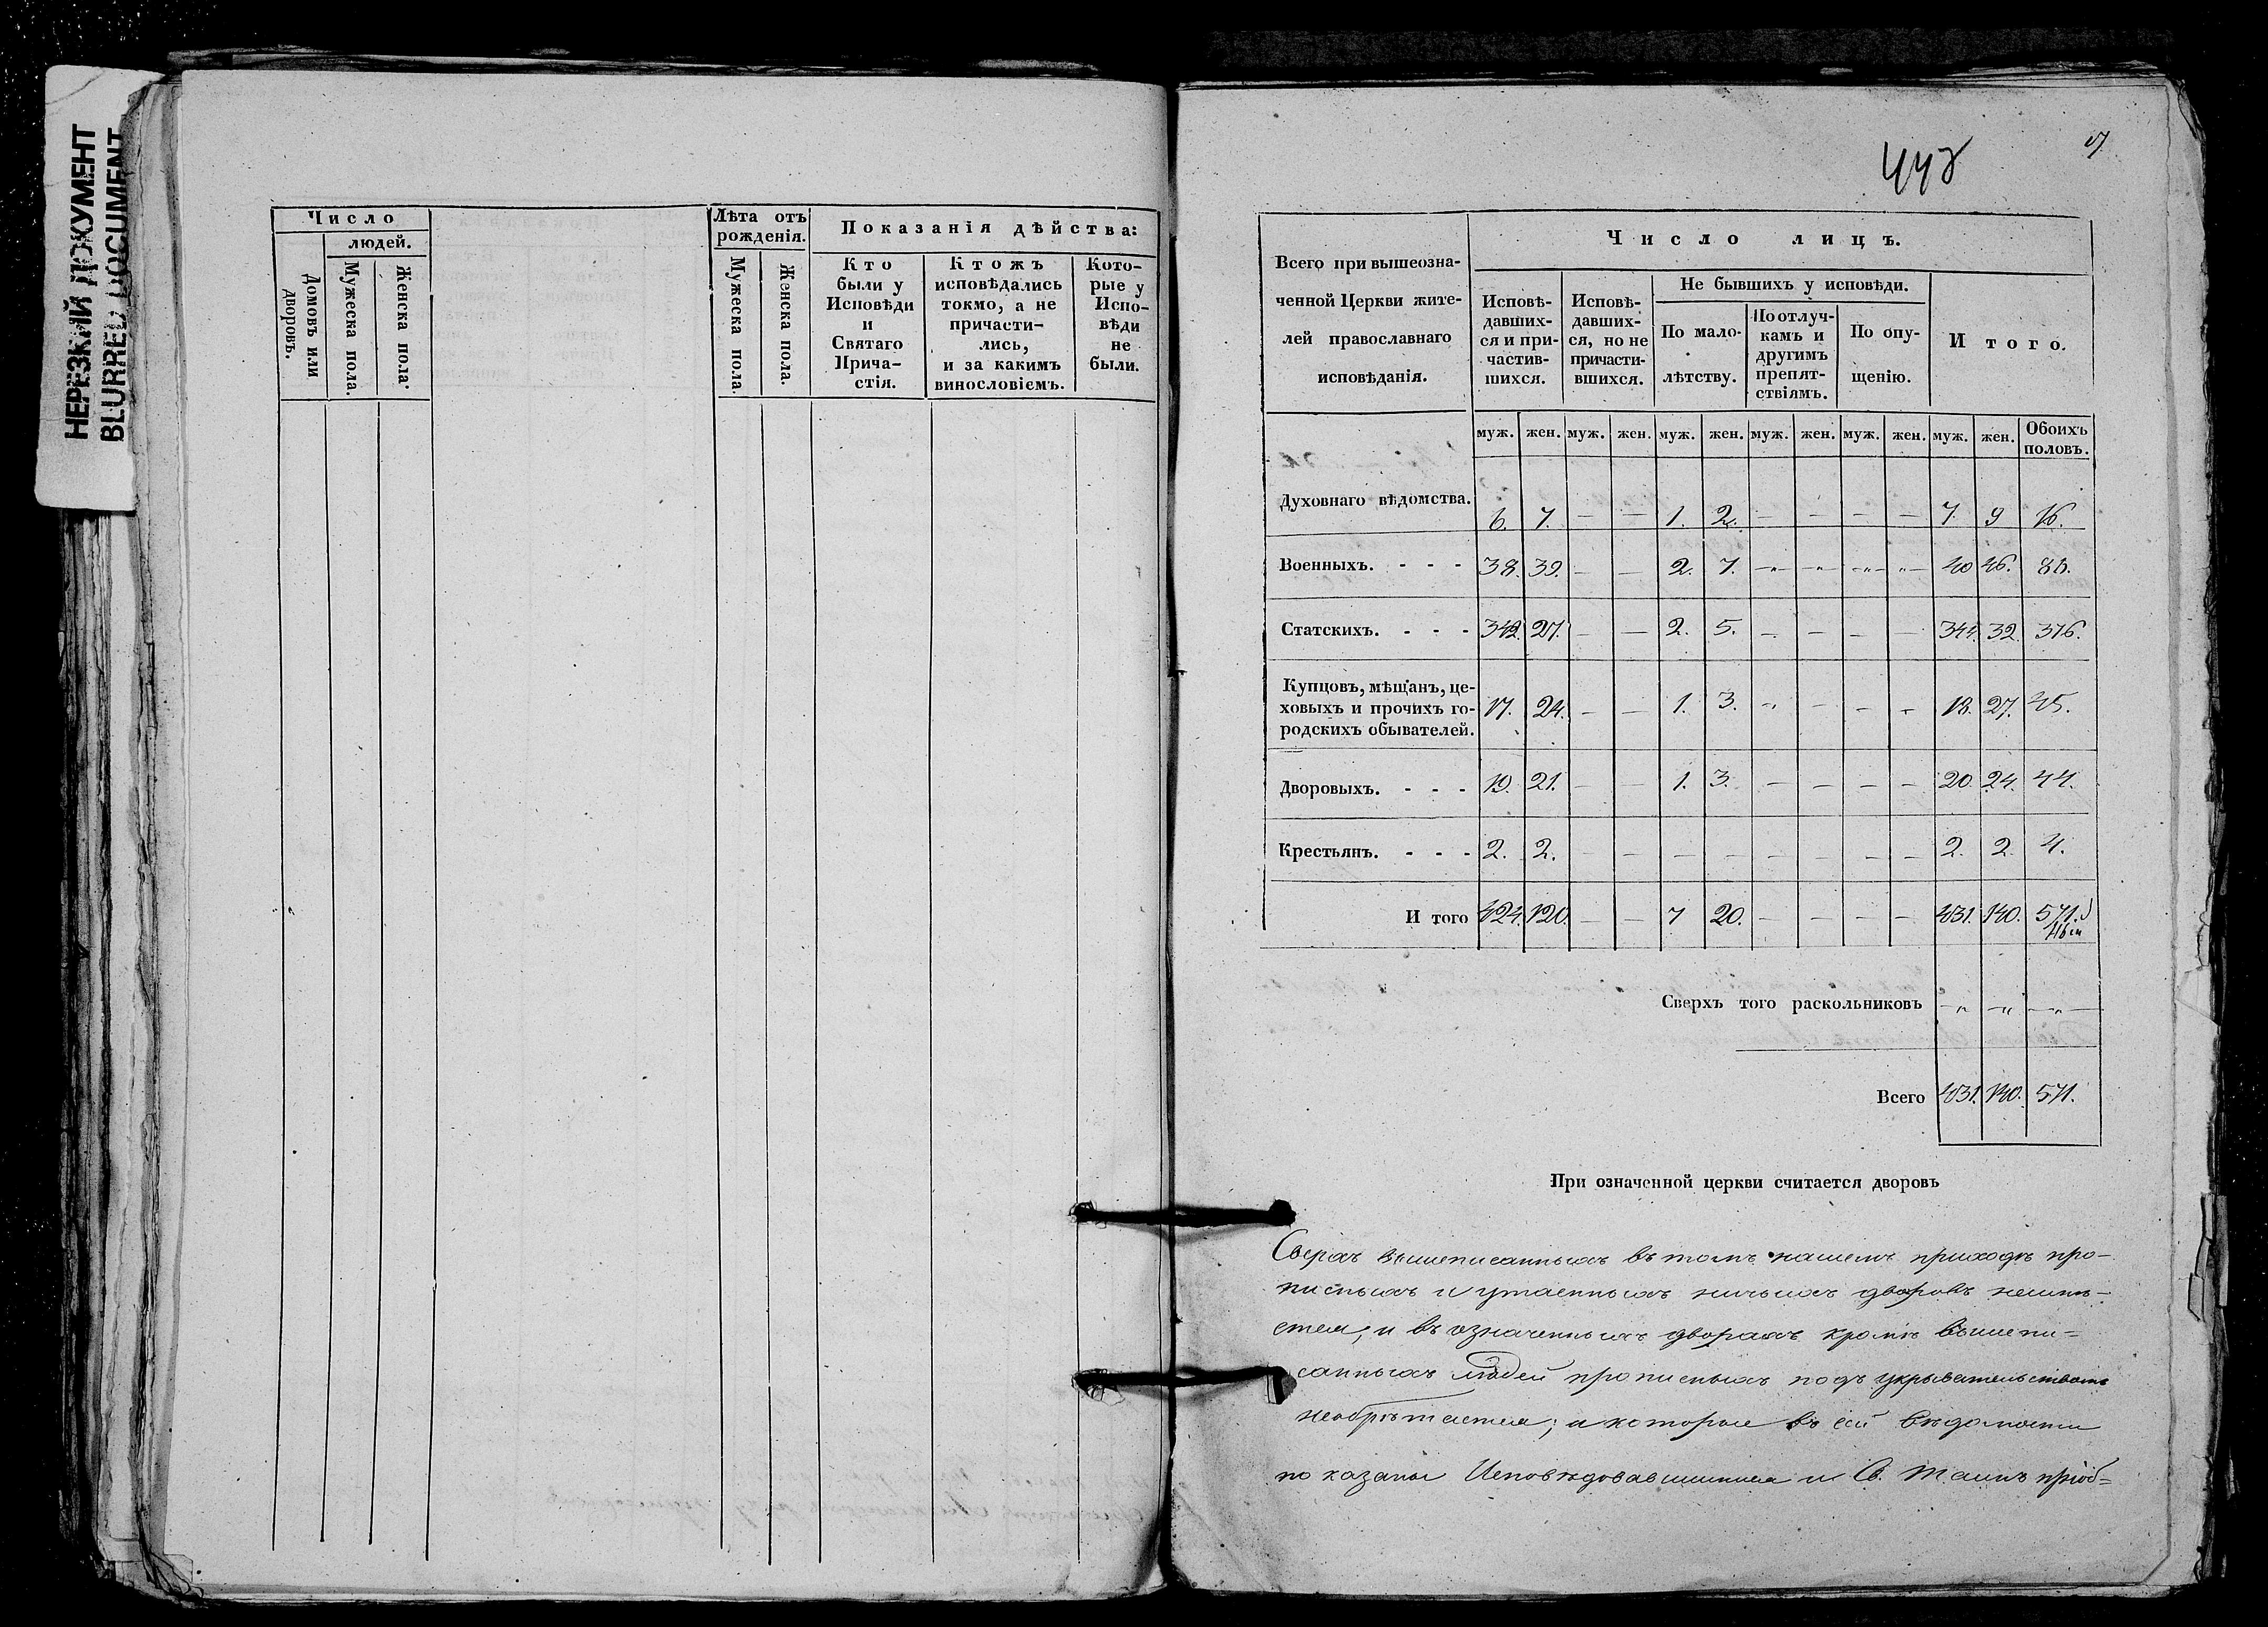 НЕРЕЗКИЙ ДОКУМЕНТ
BLURRED DOCUMENT
Число
людей.
Домовъ или дворовъ.
Мужеска пола.
Женска пола.
Лѣта отъ рожденія.
Мужеска пола
Женска пола.
Показанія дѣйства:
Кто были у Исповѣди и Святаго Прича-стія.
Ктожъ исповѣдались токмо, а не причасти-лись, и за какимъ винословіемъ.
Кото-рые у Испо-вѣди не были.
448
Всего при вышеозна-
ченной Церкви жите-
лей православнаго
исповѣданія.
Число лицъ.
Исповѣ-давших-ся и при-частив-шихся.
Исповѣ-давших-ся, но не причасти-вшихся.
Не бывшихъ у исповѣди.
По мало-лѣтству.
По отлуч-камъ и другимъ препят-ствіямъ.
По опу-щенію.
Итого.
муж. жен. муж. жен. муж. жен. муж. жен. муж. жен. муж. жен. Обоихъ половъ.
Духовнаго вѣдомства. 6. 7. — — 1. 2. — — — — 7. 9 16.
Военныхъ. - - - 38. 39. — — 2. 7. —„— —„— —„— —„— 40 46. 86.
Статскихъ. - - - 342. 27. — — 2. 5. — — — — 344. 32. 376.
Купцовъ, мѣщанъ, це-
ховыхъ и прочихъ го-
родскихъ обывателей. 17. 24. — — 1. 3. — — — — 18. 27. 45.
Дворовыхъ. - - - 19. 21. — — 1. 3. — — — — 20. 24. 44.
Крестьянъ. - - - 2. 2. — — — — — — — — 2. 2. 4.
И того 424. 120. — — 7 20. — — — — 431. 140. 571.
Сверхъ того раскольниковъ —„— —„— —„—
Всего 431. 140. 571.
При означенной церкви считается дворовъ
Сверхъ вышеписанныхъ въ томъ нашемъ приходѣ про-
писныхъ и утаенныхъ ничьихъ дворовъ неимѣ-
ется, и въ означенныхъ дворахъ кромѣ вышепи=
санныхъ людей прописныхъ подъ укрывательствомъ
необрѣтается; а которые въ сей вѣдомости
показаны Исповѣдовавшимися и Св. Таинъ пріоб=